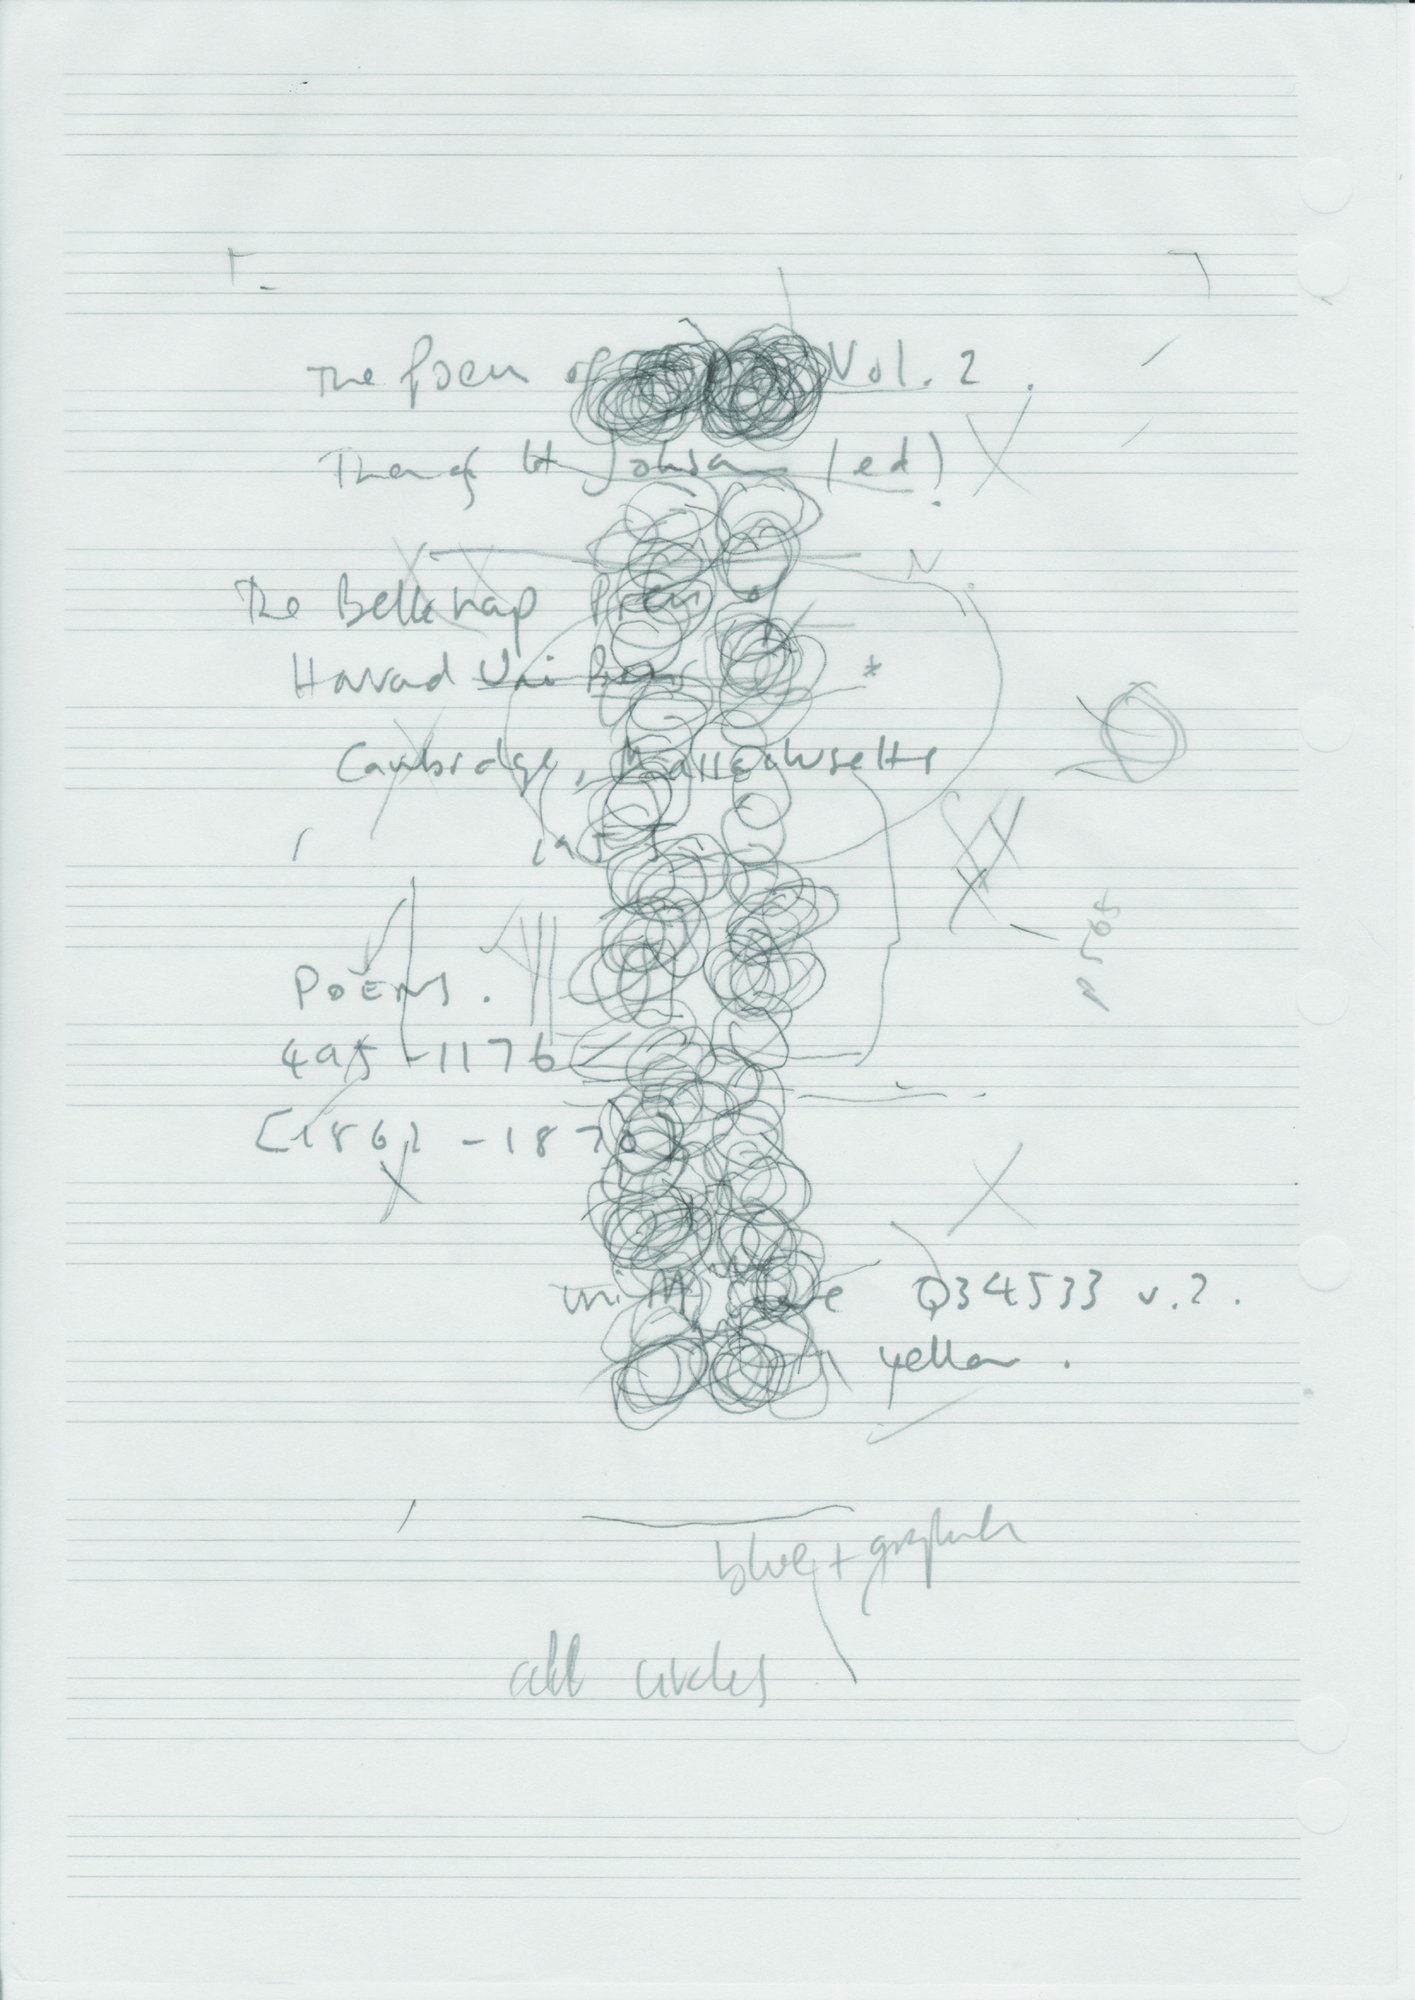 The Poem of Vol. 2.
Thomas H Johnson (ed).
N
The Belknap Press of
Harvad Uni Press *
Cambridge, Massachusetts
195
p 565
POEMS.
495 - 1176
[1862 - 1870]
Q34533 v.2.
yellow.
blue + graphite
add circles